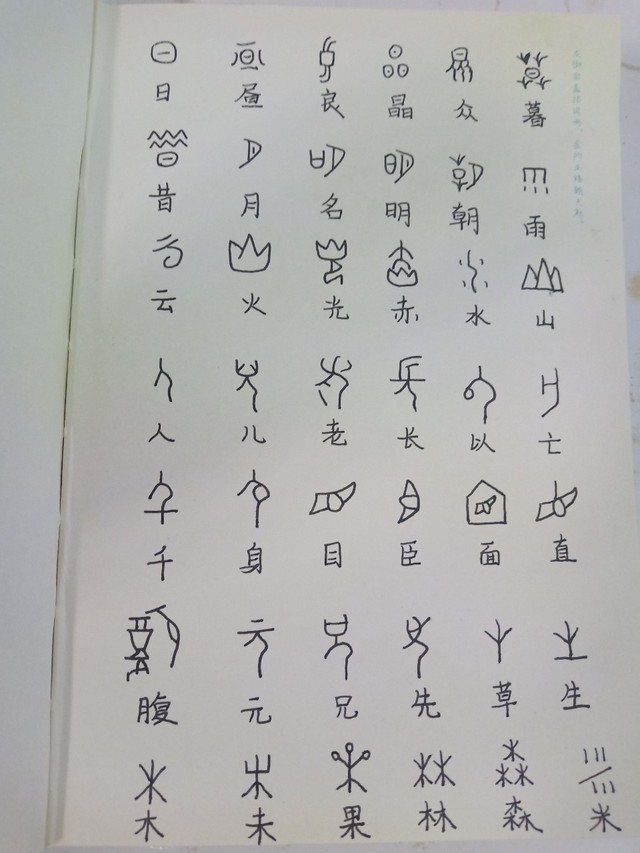 日 昼 良 晶 众 暮
昔 月 名 明 朝 雨
云 火 光 赤 水 山
人 儿 老 长 以 亡
千 身 目 臣 面 直
腹 元 兄 先 草 生
木 未 果 林 森 米